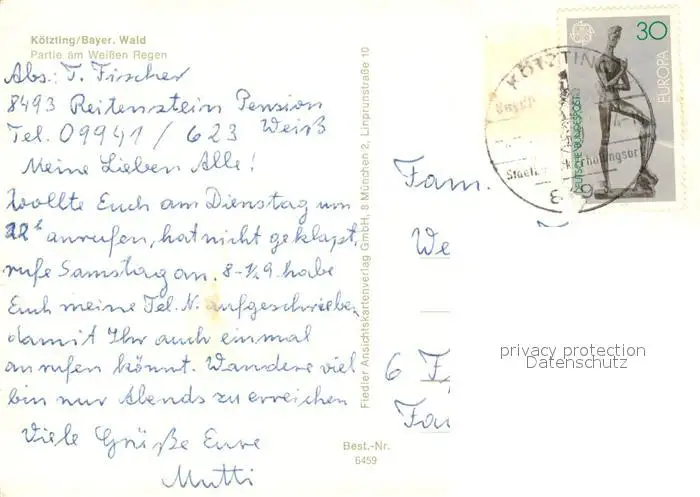 Kötzting/Bayer. Wald
Partie am Weißen Regen
Abs.: T. Fischer
8493 Reitenstein Pension
Tel. 09941 / 623 Weiß
Meine Lieben Alle!
Wollte Euch am Dienstag um
22h anrufen, hat nicht geklapt,
rufe Samstag an. 8-½9 habe
Euch meine Tel. N. aufgeschrieben
damit Ihr auch einmal
anrufen könnt. Wandere viel
bin nur Abends zu erreichen
Viele Grüße Eure
Mutti
Fiedler Ansichtskartenverlag GmbH, 8 München 2, Linprunstraße 10
Best.-Nr.
6459
30
EUROPA
DEUTSCHE BUNDESPOST
KÖTZTING
Fam.
We
6 F
privacy protection
Datenschutz